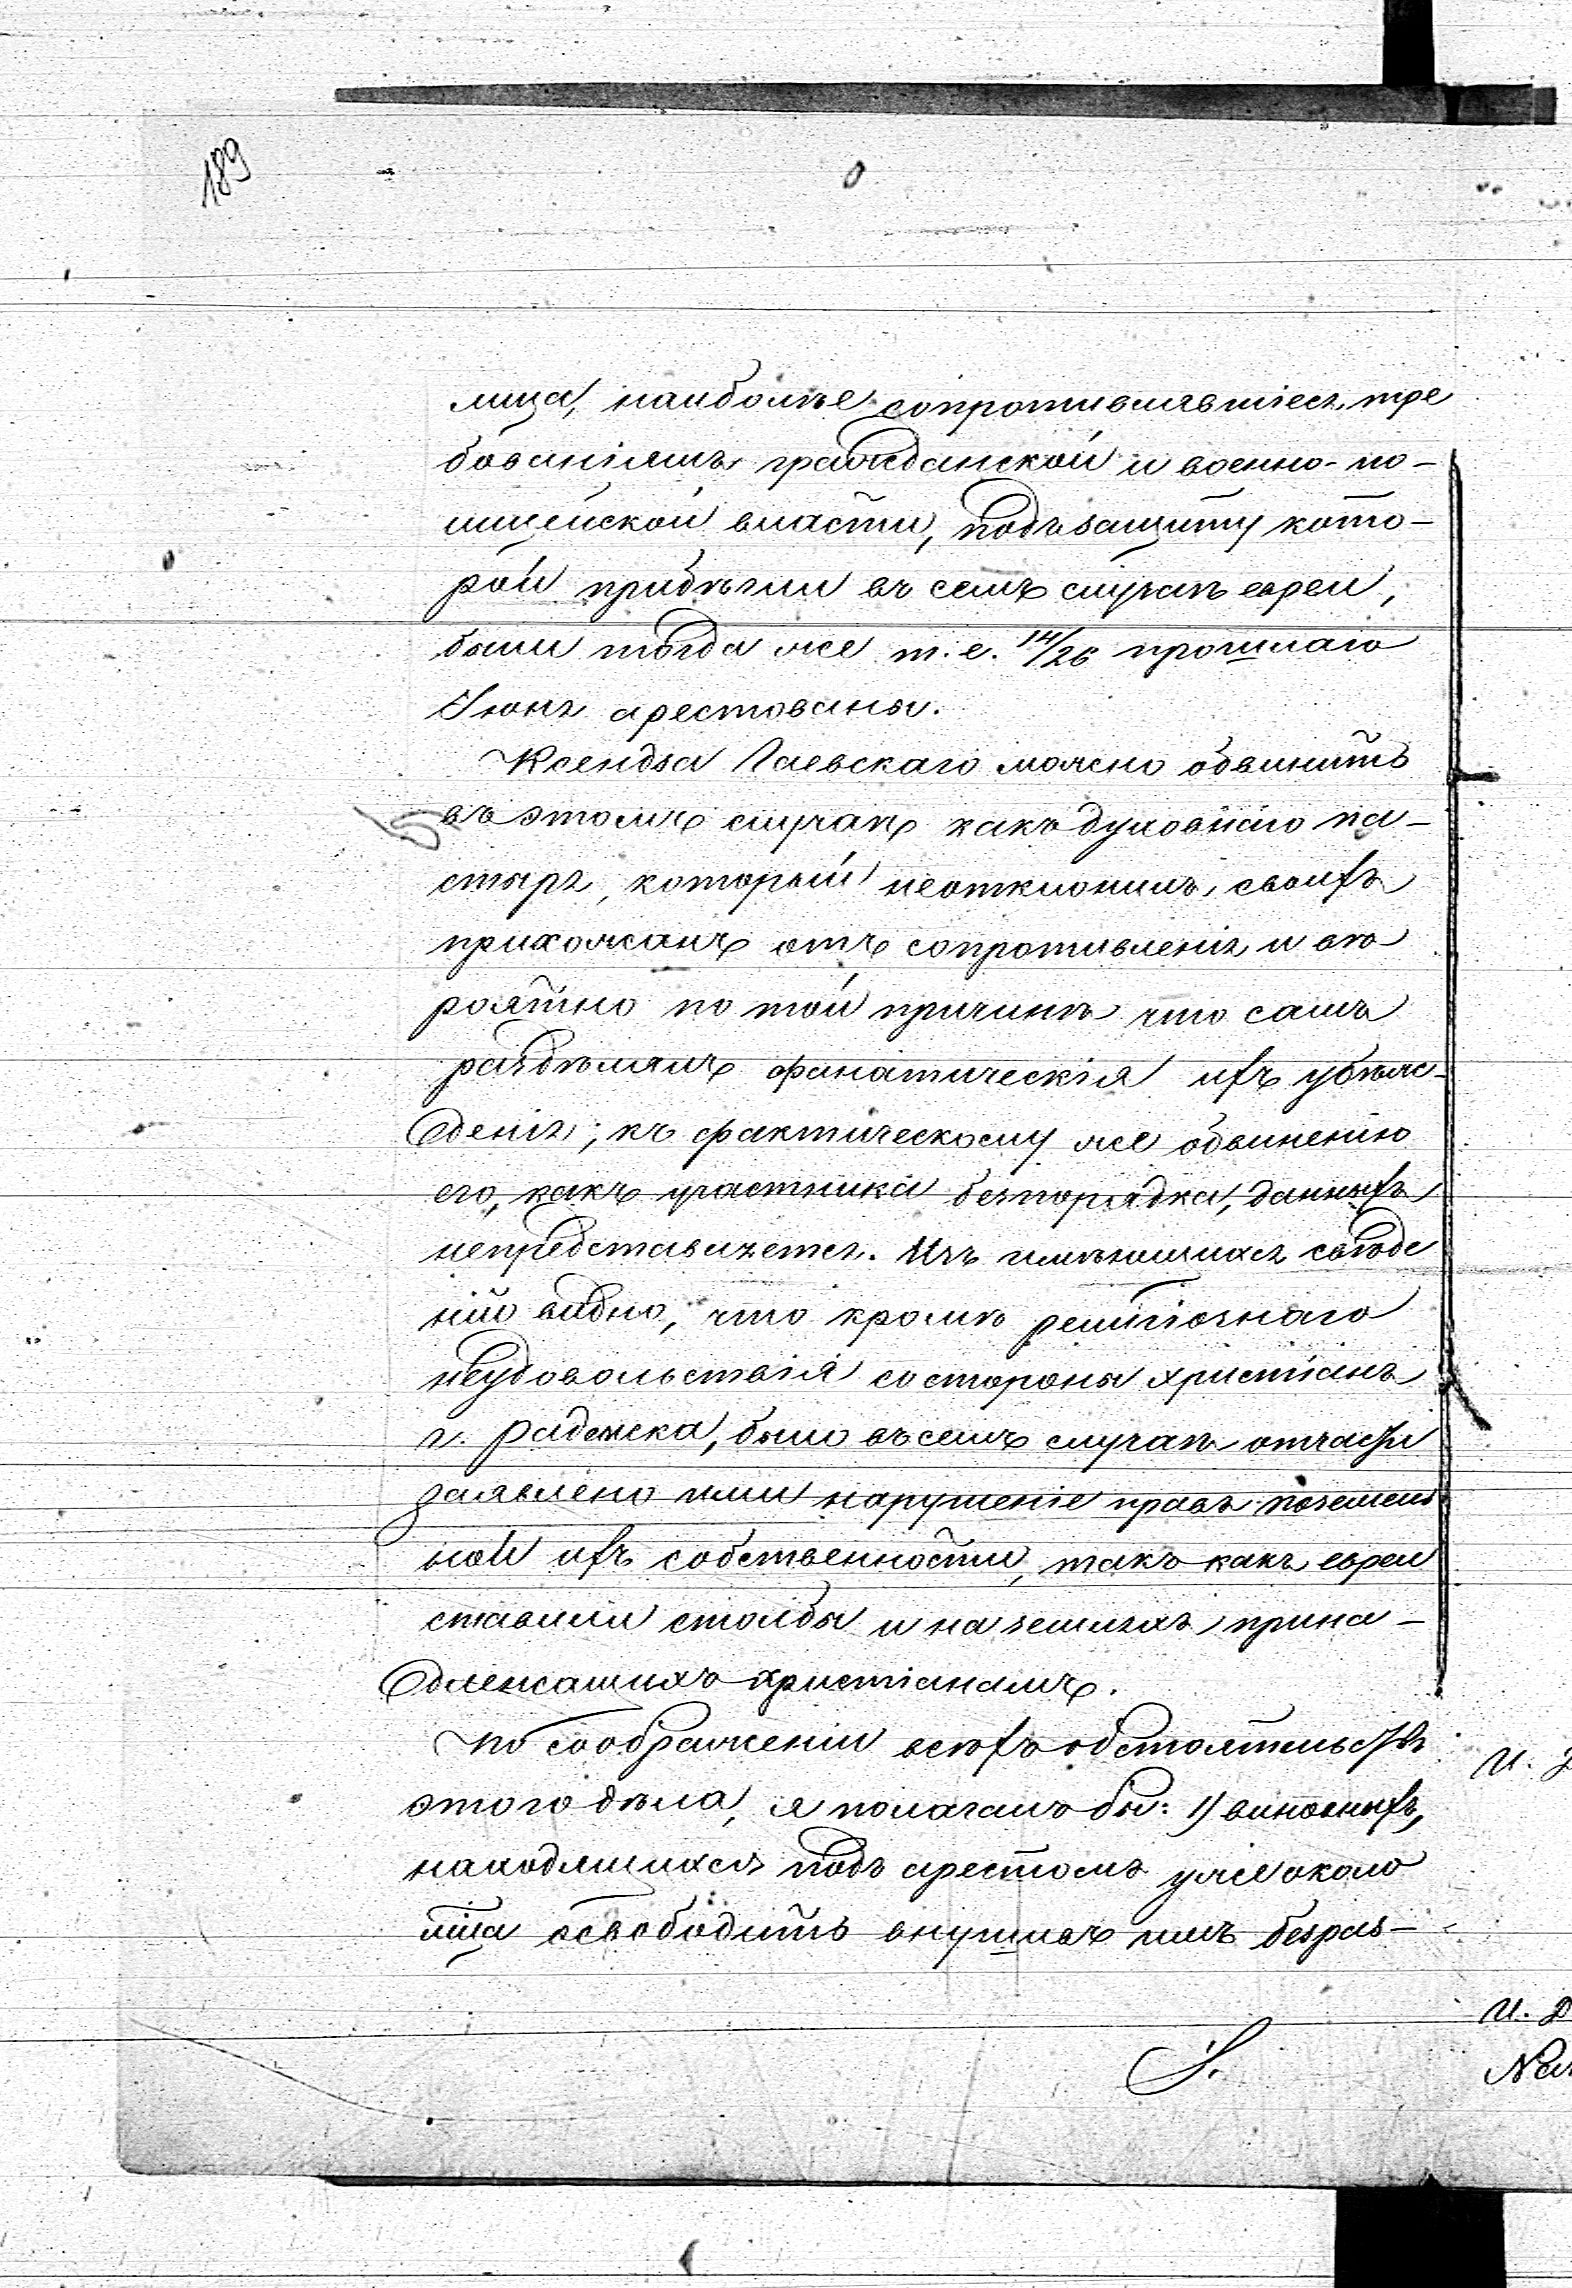 189
лица, наиболѣе сопротивлявшіеся тре
бованіямъ гражданской и военно-по-
лицейской власти, подъ защиту кото-
рой прибѣгли въ семъ случаѣ евреи,
были тогда же т. е. 14/26 прошлаго
Іюня арестованы.
Ксендза Гаевскаго можно обвинить
въ этомъ случаѣ какъ духовнаго па-
стыря, который неотклонилъ своихъ
прихожанъ отъ сопротивленія и вѣ
роятно по той причинѣ что самъ
раздѣлялъ фанатическія ихъ убѣж-
денія; къ фактическому же обвиненію
его, какъ участника безпорядка, данныхъ
непредставляется. Изъ имѣющихся свѣде
ній видно, что кромѣ религіознаго
неудовольствія со стороны христіанъ
г. Радомска, было въ семъ случаѣ отчасти
заявлено ими нарушеніе правъ поземель
ной ихъ собственности, такъ какъ евреи
ставили столбы и на земляхъ, прина-
длежащихъ христіанамъ.
По соображеніи всѣхъ обстоятельствъ
этого дѣла, я полагалъ бы: 1) виновныхъ,
находящихся подъ арестомъ уже около
мѣсяца освободить внушивъ имъ безрав-
И. Д
И. Д
На